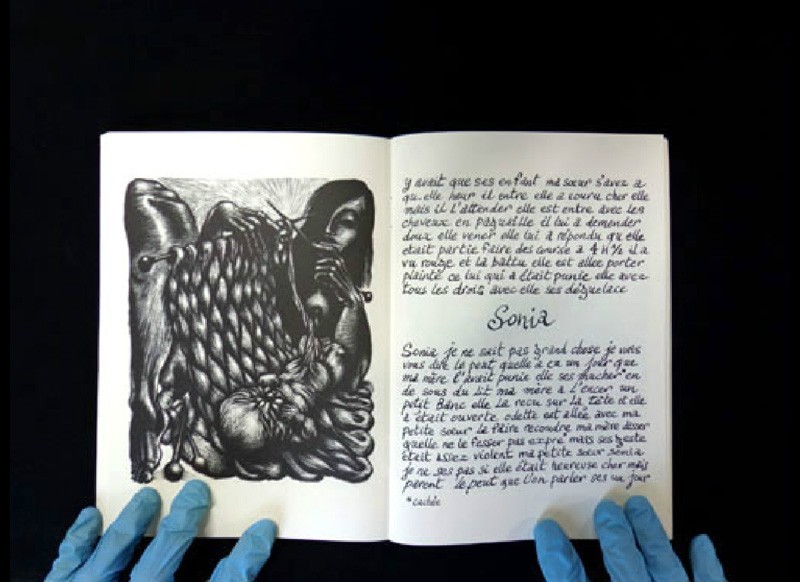 y avait que ses enfant ma sœur s'avez a
qu.elle heur il entre elle a couru cher elle
mais il L'attender elle est entre avec les
cheveux en pagaille il lui à demender
doux elle vener elle lui à répondu qu elle
etait partie faire des course a 4 H ½ il a
vu rouge et la battu elle est allee porter
plainte ce lui qui a était punie elle avec
tous les droits avec elle ses dégulace
Sonia
Sonia je ne sait pas grand chose je vais
vous dire le peut quelle à ça un jour que
ma mère l'avait punie elle ses *en
de sous du lit ma mère à L'encer un
petit Banc elle La recu sur La tête et elle
a était ouverte odette est allée avec ma
petite sœur la faire recoudre ma mère
quelle ne le fesser pas expré mais ses geste
était assez violent ma petite sœur sonia
je ne ses pas si elle était heureuse cher mais
parent le peut que l'on parler ses un jour
*cachée